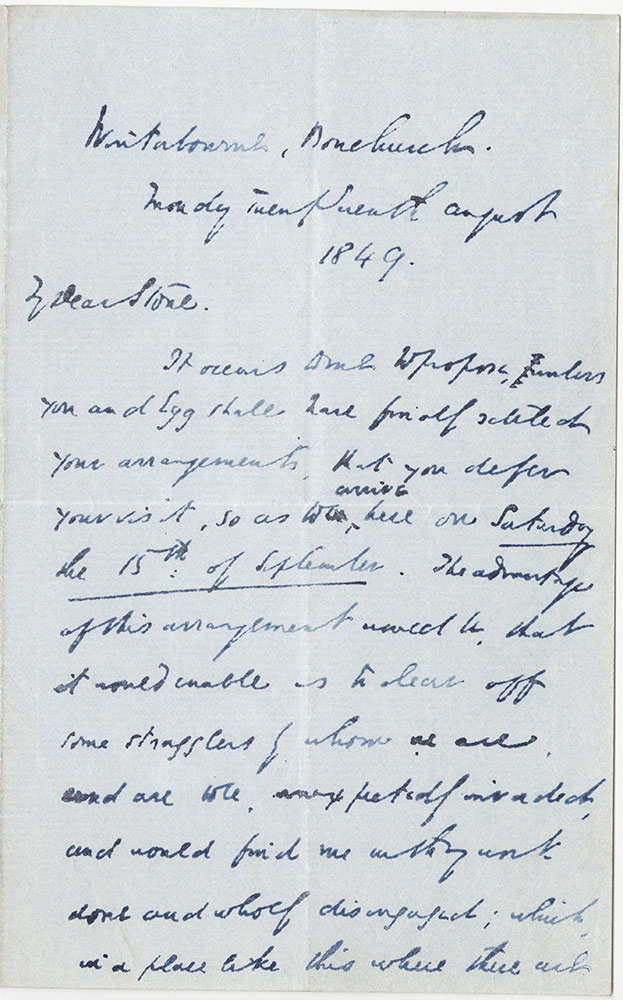 Winterbourne, Bonchurch.
Monday Twentyseventh August
1849.
My Dear Stone.
It occurs to me to propose, unless
you and Egg shall have finally settled
your arrangements, that you defer
arrive
your visit, so as to here on Saturday
the 15th of September. The advantage
of this arrangement would be, that
it would enable us to clear off
some stragglers by whom we are,
and are to be, unexpectedly invaded,
and would find me with my work
done and wholly disengaged; which,
in a place like this where there are